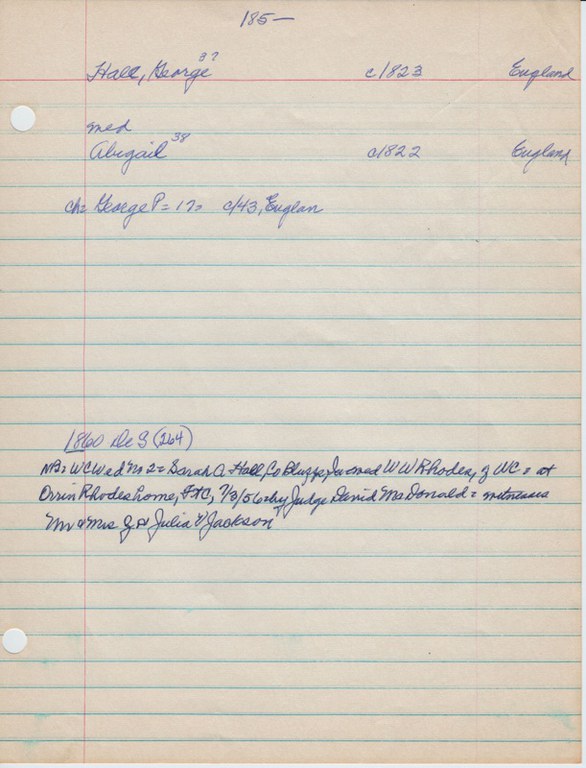 185—
Hall, George 37 c1823 England
med
Abigail 38 c1822 England
ch= George P= 17= c/43, Englan
1860 De S (264)
NB= WC Wed = Sarah A. Hall, Co Bluffs, Ia wed W W Rhodes, of WC = at
Orrin Rhodes home, Ft C, 7/3/56 = by Judge David McDonald = witnesses
Mr & Mrs & Julia Jackson